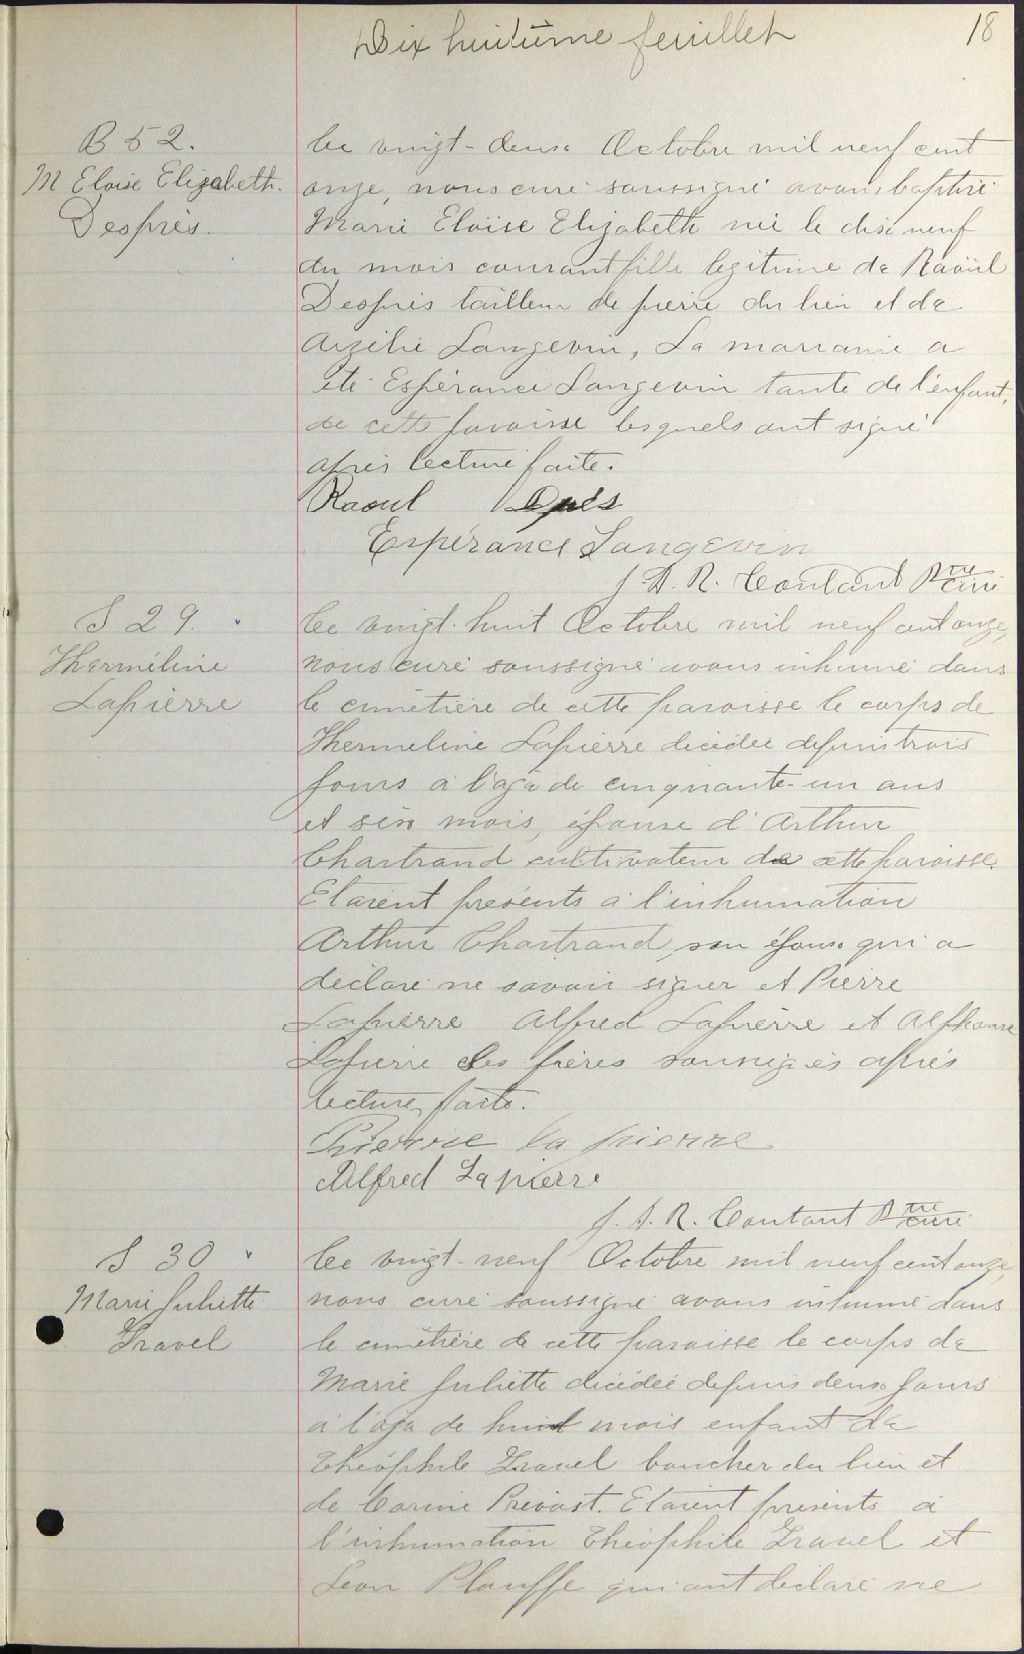 Dix huitième feuillet
18
B 52.
M Eloise Elizabeth.
Desprès.
Le vingt-deux Octobre mil neuf cent
onze, nous curé soussigné avons baptisé
Marie Eloïse Elizabeth née le dix neuf
du mois courant fille légitime de Raoül
Després tailleur de pierre du lieu et de
Azélie Langevin, La marraine a
été Espérance Langevin tante de l'enfant,
de cette paroisse lesquels ont signé
après lecture faite.
Raoul
Espérance Langevin
J. A. R. Coutant Ptre curé
S 29.
Therméline
Lapierre
Le vingt-huit Octobre mil neuf cent onze,
nous curé soussigné avons inhumé dans
le cimetière de cette paroisse le corps de
Thermeline Lapierre décédée depuis trois
jours à l'âge de cinquante-un ans
et six mois, épouse d'Arthur
Chartrand cultivateur de cette paroisse.
Etaient présents à l'inhumation
Arthur Chartrand, son époux qui a
déclaré ne savoir signer et Pierre
Lapierre Alfred Lapierre et Alphonse
Lapierre ses frères soussignés après
lecture faite.
Pierre la pierre
Alfred Lapierre
J. A. R. Coutant Ptre curé
S 30
Marie Juliette
Gravel
Le vingt-neuf Octobre mil neuf cent onze,
nous curé soussigné avons inhumé dans
le cimetière de cette paroisse le corps de
Marie Juliette décédée depuis deux jours
à l'âge de huit mois enfant de
Théophile Gravel boucher du lieu et
de Corine Prévost. Etaient présents à
l'inhumation Théophile Gravel et
Léon Plouffe qui ont déclaré ne